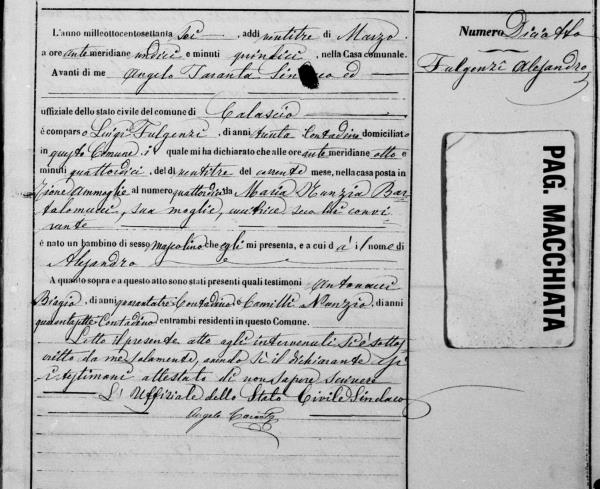 L'anno milleottocentosettanta Sei, addì ventitre di Marzo
a ore antemeridiane undici e minuti quindici, nella Casa comunale.
Avanti di me Angelo Taranta Sindaco ed
uffiziale dello stato civile del comune di Calascio
è comparso Luigi Fulgenzi, di anni trenta Contadino domiciliato
in questo Comune il quale mi ha dichiarato che alle ore antemeridiane otto e
minuti quattordici, del dì ventitre del corrente mese, nella casa posta in
al numero quattordici da Maria Nunzia Bar-
tolomucci, sua moglie, seco lui convi-
vente
è nato un bambino di sesso mascolino che egli mi presenta, e a cui dà il nome di
Alesandro
A quanto sopra e a questo atto sono stati presenti quali testimoni Antonacci
Biagio, di anni quarantatre Contadino e Camilli Nunzio, di anni
quarantasette Contadino entrambi residenti in questo Comune.
Letto il presente atto agli intervenuti si è sotto-
scritto da me solamente, avendo sì il dichiarante che
i testimoni attestato di non sapere scrivere
L'Uffiziale dello Stato Civile Sindaco
Angelo Taranta
Numero Diciotto
Fulgenzi Alesandro
PAG. MACCHIATA